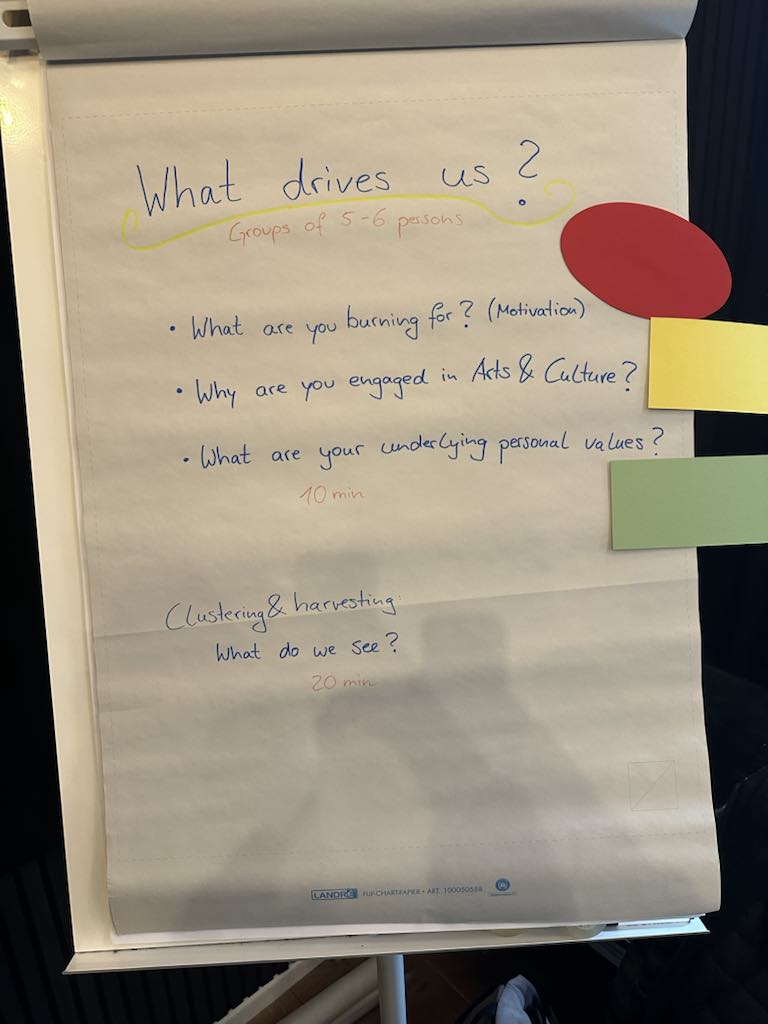 What drives us?
Groups of 5-6 persons
• What are you burning for? (Motivation)
• Why are you engaged in Arts & Culture?
• What are your underlying personal values?
10 min
Clustering & harvesting:
What do we see?
20 min
LANDRÉ FLIP-CHART-PAPIER • ART. 100050588